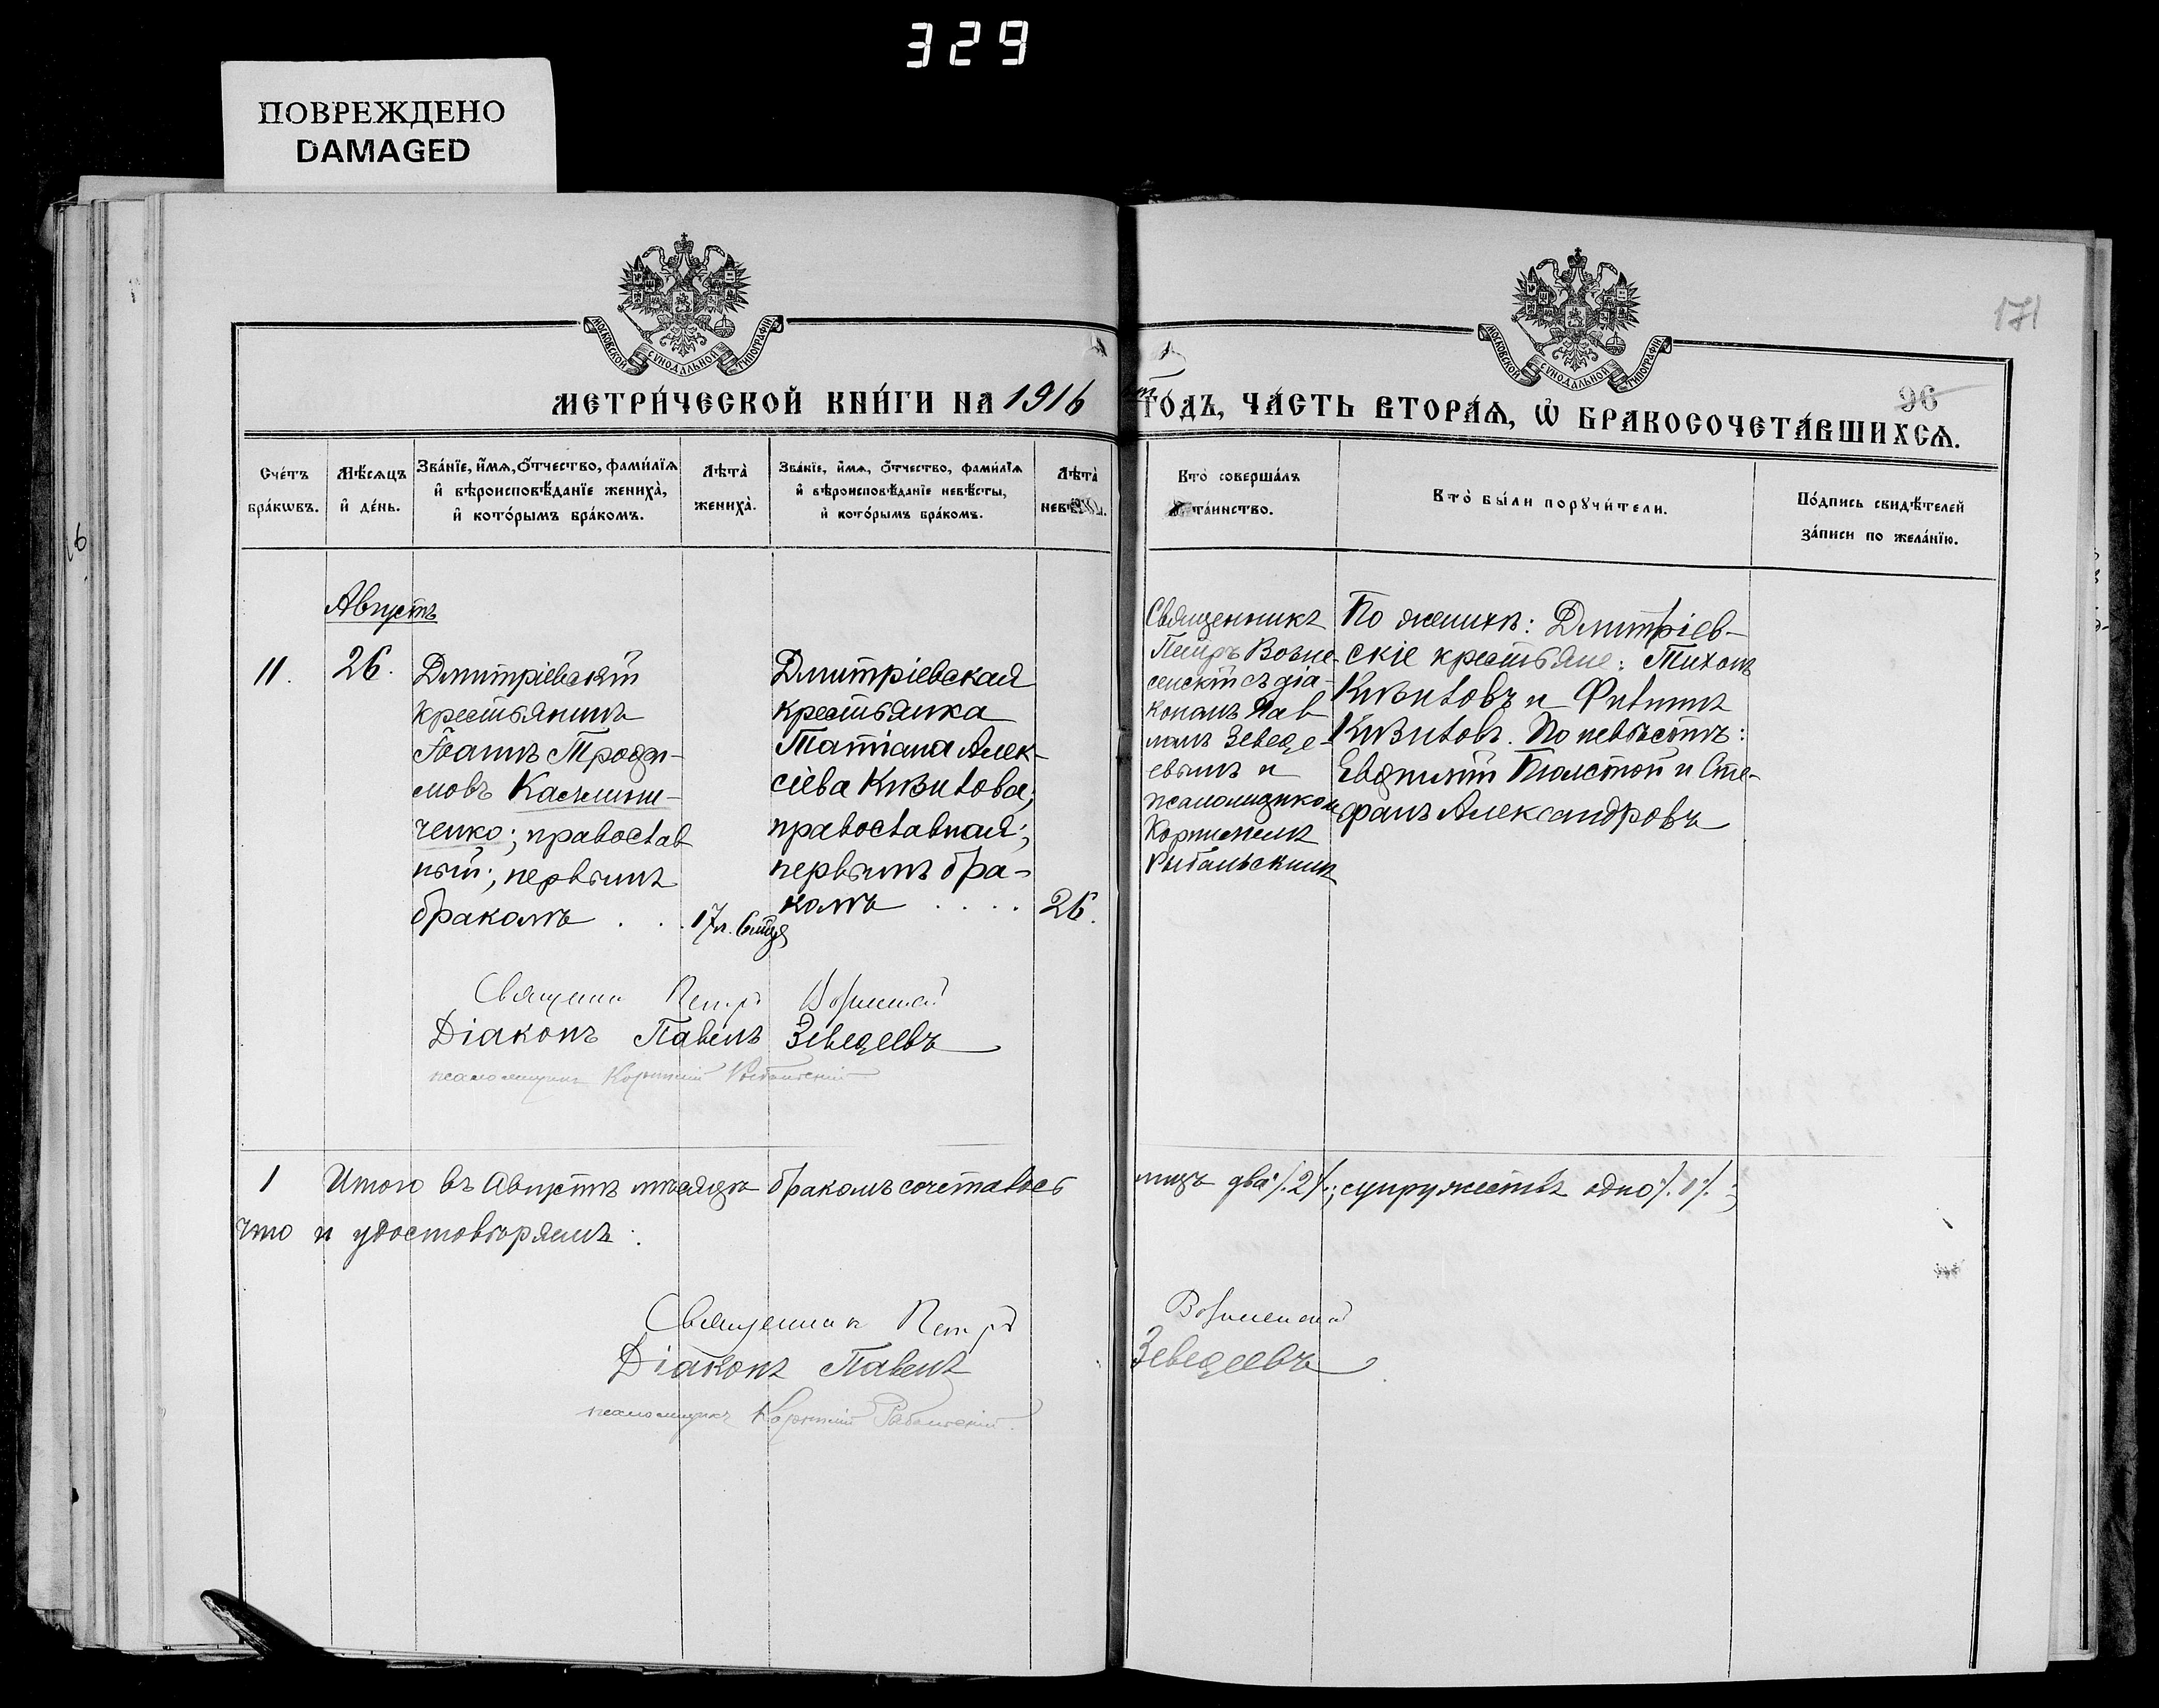 329
ПОВРЕЖДЕНО
DAMAGED
171
МОСКОВСКОЙ СѴНОДАЛЬНОЙ ТИПОГРАФІИ
МОСКОВСКОЙ СѴНОДАЛЬНОЙ ТИПОГРАФІИ
96
МЕТРИ́ЧЕСКОЙ КНИ́ГИ НА 1916 ГО́ДЪ, ЧА́СТЬ ВТОРА́Ѧ, Ѡ БРАКОСОЧЕТА́ВШИХСѦ.
Сче́тъ бра́кѡвъ.
Мѣ́сѧцъ и де́нь.
Зва́нїе, и́мѧ, ѻ́тчество, фами́лїѧ
и вѣроисповѣ́данїе жениха̀,
и кото́рымъ бра́комъ.
Лѣта̀ жениха̀.
Зва́нїе, и́мѧ, ѻ́тчество, фами́лїѧ
и вѣроисповѣ́данїе невѣ́сты,
и кото́рымъ бра́комъ.
Лѣта̀
Кто̀ соверша́лъ
та́инство.
Кто̀ бы́ли порꙋчи́тели.
По́дпись свидѣ́телей
за́писи по жела́нїю.
Августъ
11.
26.
Дмитріевскій
крестьянинъ
Іоаннъ Трофи-
мовъ
ченко; православ
ный; первымъ
бракомъ . . .
17 л.
Дмитріевская
крестьянка
Татіана Алек-
сіева Кивилова;
православная;
первымъ бра-
комъ . . . .
26.
Священникъ
Петръ Возне-
сенскій съ діа-
кономъ Пав
ломъ Зеведе-
евымъ и
псаломщиком
Корниліемъ
Рыбальскимъ
По женихѣ: Дмитріев-
скіе крестьяне: Тихонъ
Кивиловъ и Филиппъ
Кивиловъ. По невѣстѣ:
Евфимій Толстой и Сте-
фанъ Александровъ
Священн Петръ Вознесенскій
Діаконъ Павелъ Зеведеевъ
псаломщикъ Корнилій Рыбальскій
1 Итого въ Августѣ мѣсяцѣ бракомъ сочеталось лицъ два /2/; супружествъ одно /1/;
что и удостовѣряемъ:
Священникъ Петръ Вознесенскій
Діаконъ Павелъ Зеведеевъ
псаломщикъ Корнилій Рыбальскій